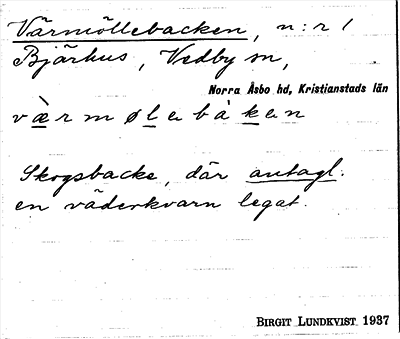 Värmöllebacken, n:r 1
Bjärhus, Vedby sn,
Norra Åsbo hd, Kristianstads län
væ̀rmøl̲ebàk̲en
Skogsbacke, där antagl.
en väderkvarn legat.
BIRGIT LUNDKVIST 1937